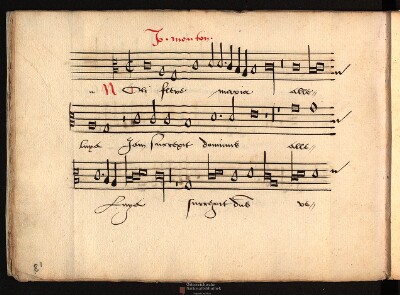 Jo. mouton.
Noli flere maria alle
luya Jam surrexit dominus alle
luya surrexit dns
Österreichische
Nationalbibliothek